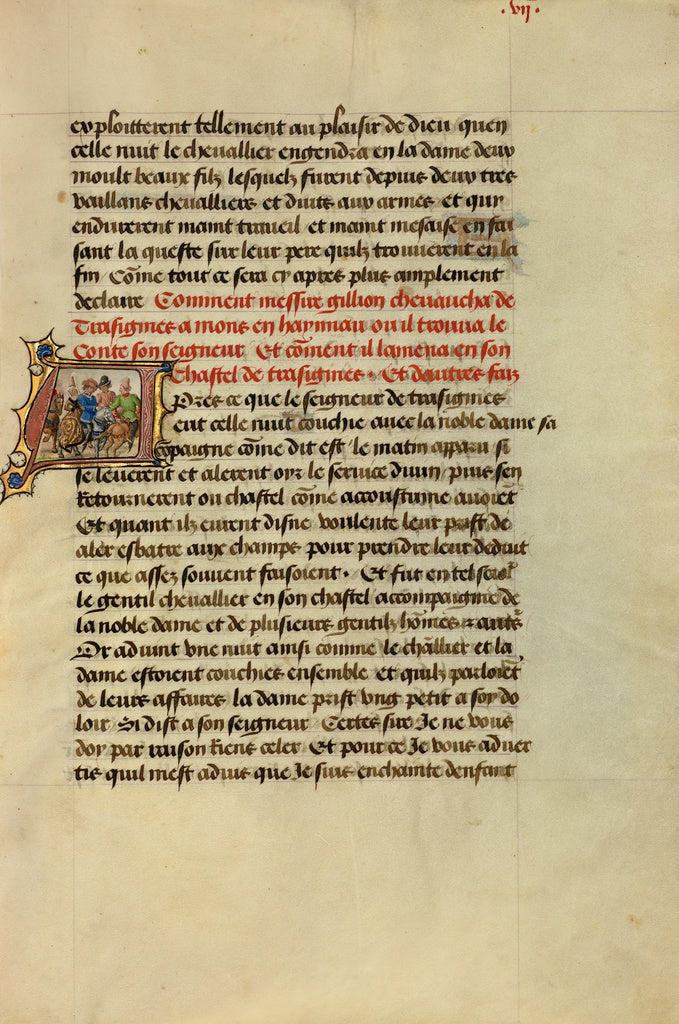 .vij.
exploitterent tellement au plaisir de dieu quen
celle nuit le chevallier engendra en la dame deux
moult beaux filz lesquelz furent depuis deux tres
vaillans chevalliers et duits aux armes et qui
endurerent maint traveil et maint mesaise en fai
sant la queste sur leur pere quilz trouverent en la
fin Cõme tout ce sera cy apres plus amplement
declaire Comment messire gillion chevaucha de
Trasignies a mons en haynnau ou il trouva le
Conte son seigneur Et cõment il lamena en son
Chastel de trasignies . Et dautres faiz
Aprés ce que le seigneur de trasignies
eut celle nuit couchie avec la noble dame sa
cõpaigne cõme dit est le matin apparu si
se leverent et alerent oyr le service divin puis sen
Retournerent ou chastel cõme accoustume avoiẽt
Et quant ilz eurent disne voulente leur prist de
aler esbatre aux champs pour prendre leur deduit
ce que assez souvent faisoient . Et fut en tel
le gentil chevallier en son chastel accompaignie de
la noble dame et de plusieurs gentilz hõmes et autrẽs
Or advint une nuit ainsi comme le chãllier et la
dame estoient couchies ensemble et quilz parloiẽt
de leurs affaires la dame prist ung petit a soy do
loir Si dist a son seigneur Certes sire Je ne vous
doy par raison Riens celer Et pour ce Je vous adver
tis quil mest advis que Je suis enchainte denfant